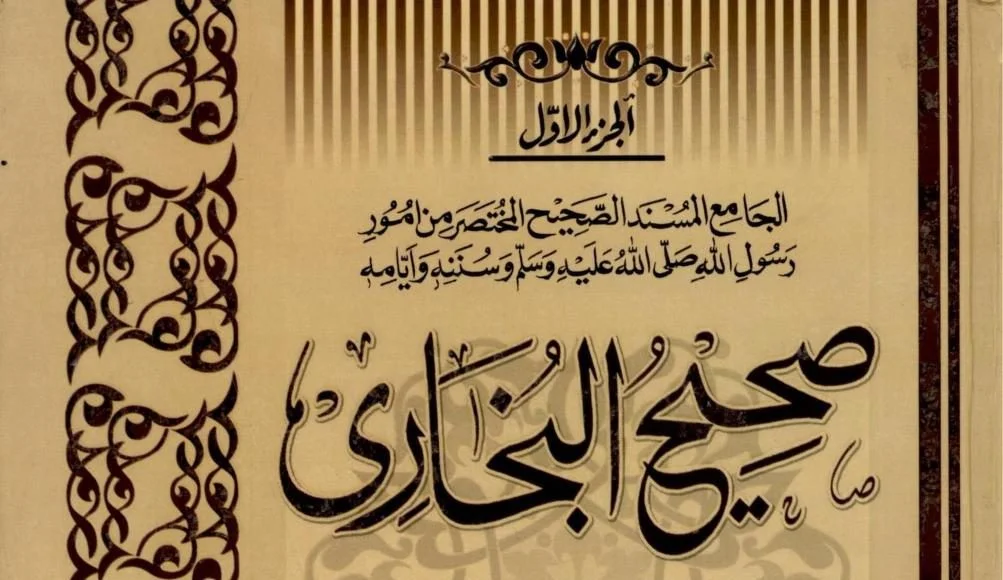 ألجزء الاوّل
الجَامِع المُسْنَد الصَّحِيْح المُخْتَصَر مِن امُوُرِ
رَسُولِ اللهِ صَلَّى اللهُ عَلَيْهِ وَسَلَّم وَسُنَنِهٖ وَاَيَّامِهٖ
صَحِيْحُ البُخَارِى